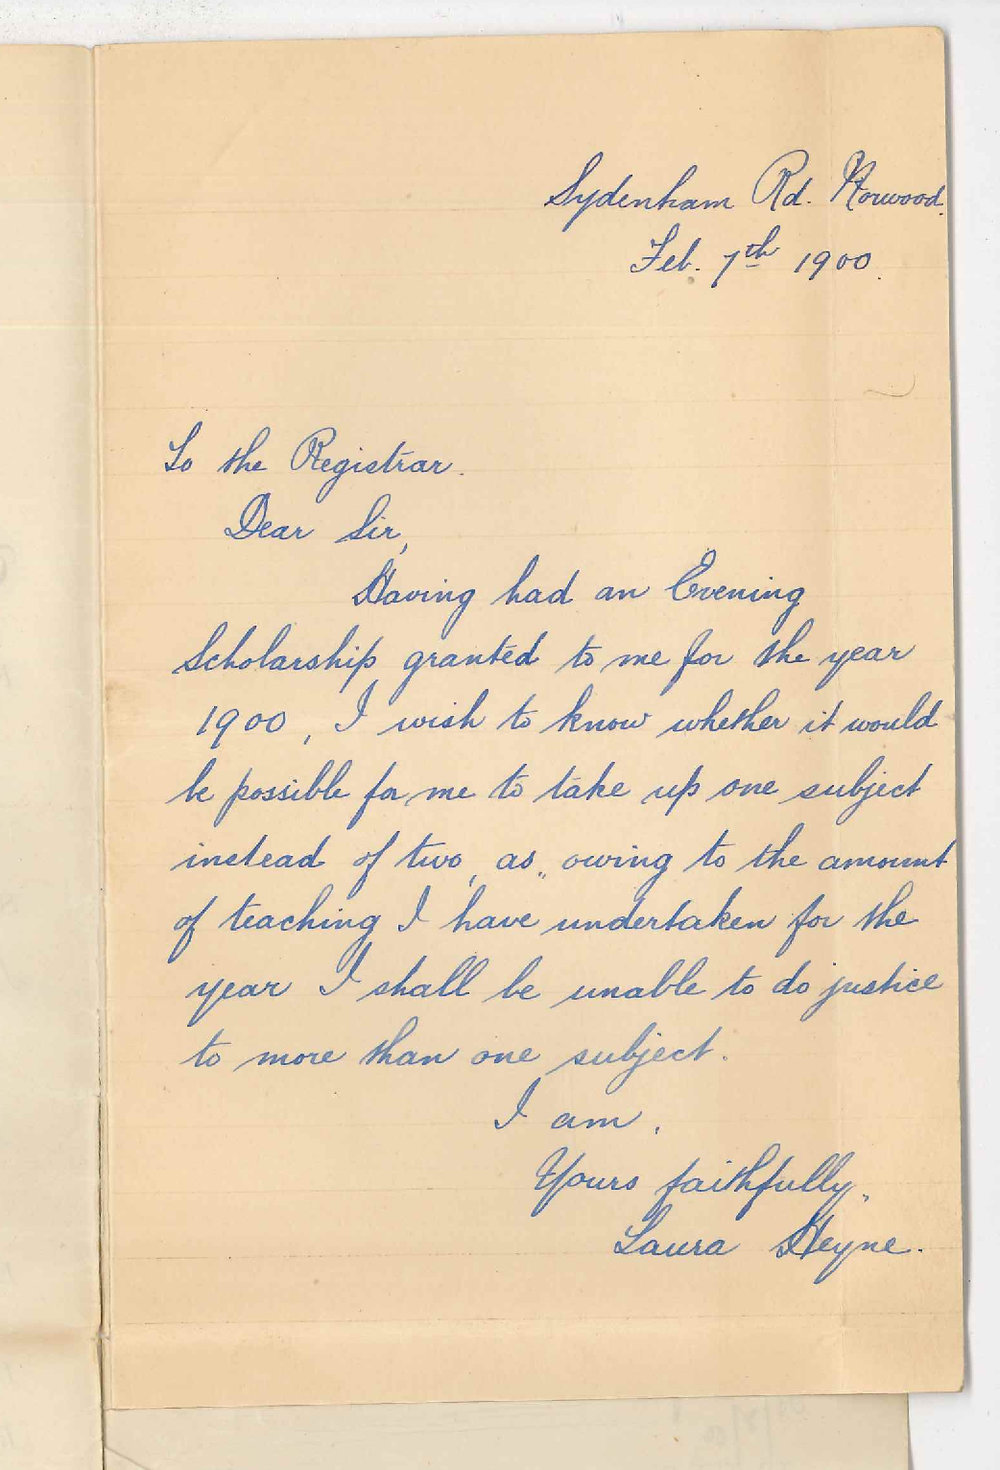 Sydenham Rd. Norwood.
Feb. 7th 1900.
To the Registrar.
Dear Sir,
Having had an Evening
Scholarship granted to me for the year
1900, I wish to know whether it would
be possible for me to take up one subject
instead of two, as, owing to the amount
of teaching I have undertaken for the
year I shall be unable to do justice
to more than one subject.
I am,
Yours faithfully,
Laura Heyne.